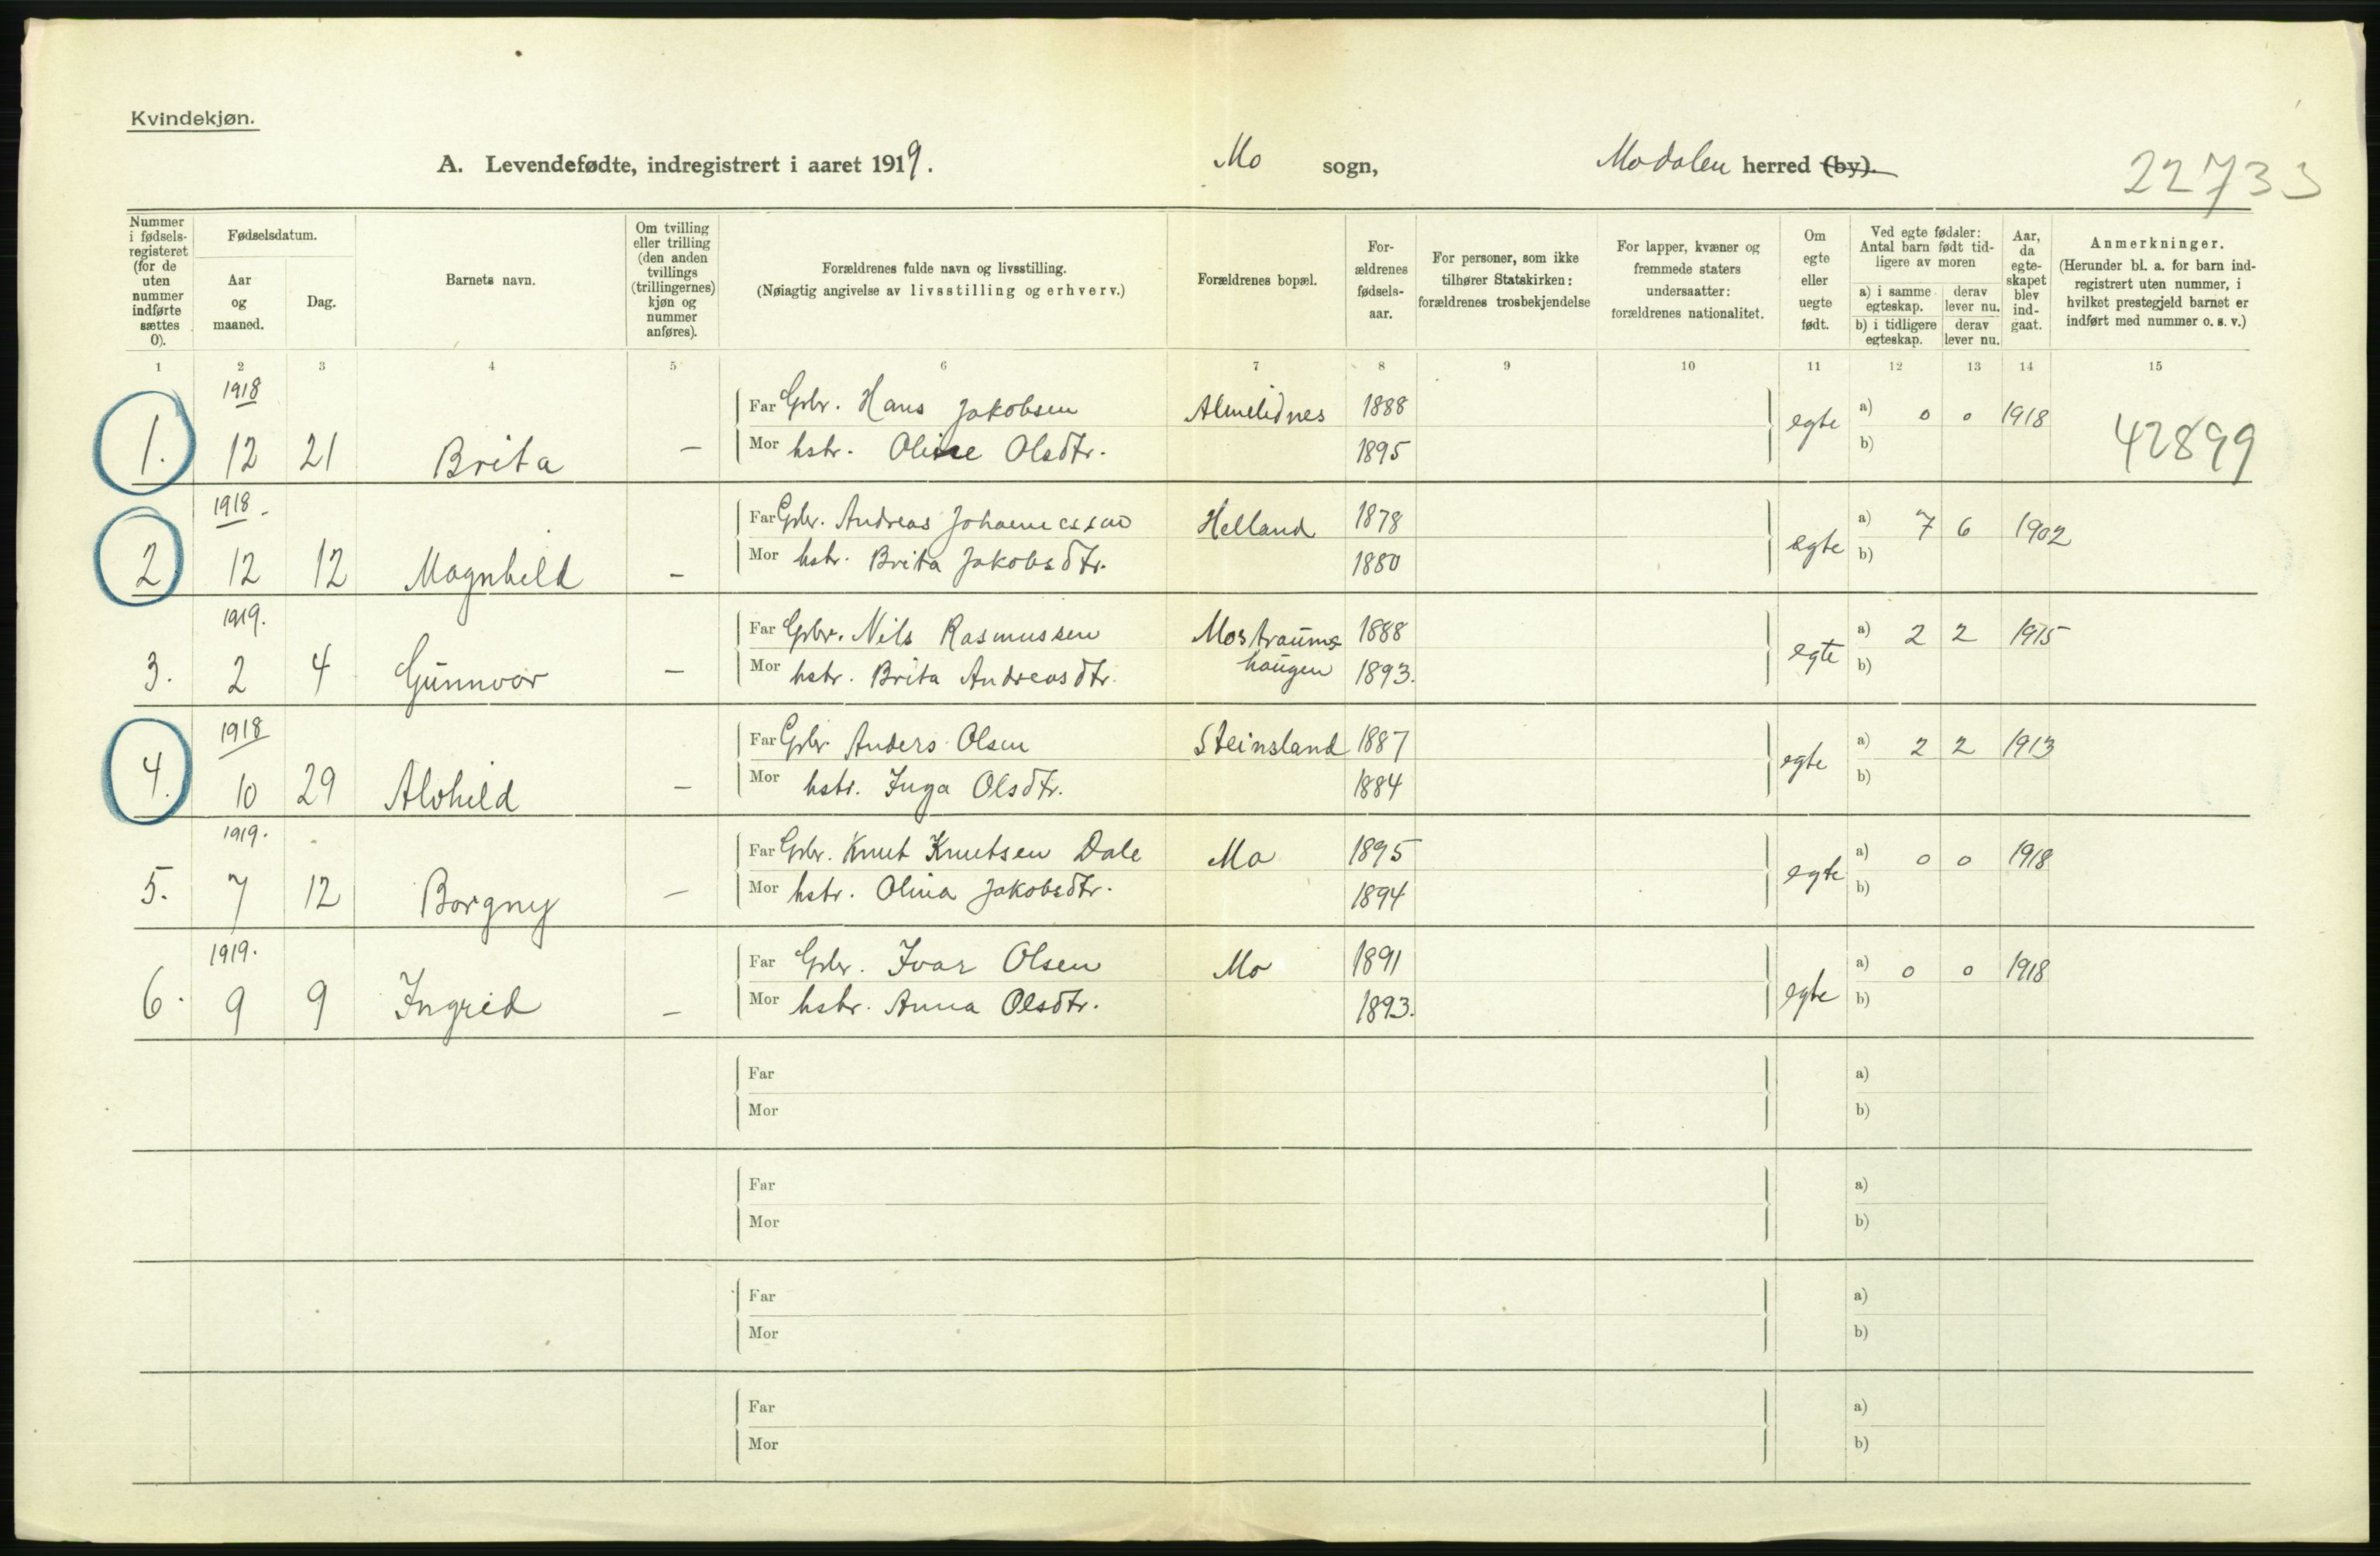 Kvindekjøn.
A. Levendefødte, indregistrert i aaret 1919. Mo sogn, Modalen herred (by).
22733
Nummer i fødsels-registeret (for de uten nummer indførte sættes 0).
Fødselsdatum.
Aar og maaned.
Dag.
Barnets navn.
Om tvilling eller trilling (den anden tvillings (trillingernes) kjøn og nummer anføres).
Forældrenes fulde navn og livsstilling.
(Nøiagtig angivelse av livsstilling og erhverv.)
Forældrenes bopæl.
For-ældrenes fødsels-aar.
For personer, som ikke tilhører Statskirken: forældrenes trosbekjendelse
For lapper, kvæner og fremmede staters undersaatter: forældrenes nationalitet.
Om egte eller uegte født.
Ved egte fødsler: Antal barn født tid-ligere av moren
a) i samme egteskap.
derav lever nu.
b) i tidligere egteskap.
derav lever nu.
Aar, da egte-skapet blev ind-gaat.
Anmerkninger.
(Herunder bl. a. for barn ind-registrert uten nummer, i hvilket prestegjeld barnet er indført med nummer o. s. v.)
1 2 3 4 5 6 7 8 9 10 11 12 13 14 15
1918
Far Gbr. Hans Jakobsen Almelidnes 1888 egte a) 0 0 1918
1. 12 21 Brita – Mor hstr. Oline Olsdtr. 1895 b) 42899
1918 -
Far Gbr. Andreas Johannessen Helland 1878 egte a) 7 6 1902
2 12 12 Magnhild – Mor hstr. Brita Jakobsdtr. 1880 b)
1919.
Far Gbr. Nils Rasmussen Mostraums- 1888 egte a) 2 2 1915
3. 2 4 Gunnvor – Mor hstr. Brita Andreasdtr. haugen 1893. b)
1918
Far Gbr. Anders Olsen Steinsland 1887 egte a) 2 2 1913
4. 10 29 Alvhild – Mor hstr. Inga Olsdtr. 1884 b)
1919.
Far Gbr. Knut Knutsen Dale Mo 1895 egte a) 0 0 1918
5. 7 12 Borgny – Mor hstr. Olina Jakobsdtr. 1894 b)
1919.
Far Gbr. Ivar Olsen Mo 1891 egte a) 0 0 1918
6. 9 9 Ingrid – Mor hstr. Anna Olsdtr. 1893. b)
Far a)
Mor b)
Far a)
Mor b)
Far a)
Mor b)
Far a)
Mor b)